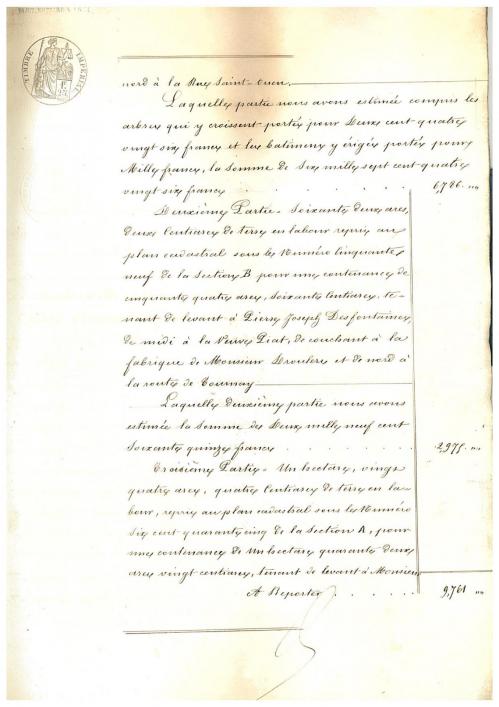 TIMBRE IMPÉRIAL
nord à la Rue Saint-Ouen.
Laquelle partie nous avons estimée compris les
arbres qui y croissent portés pour Deux cent quatre
vingt six francs et les batiments y érigés portés pour
Mille francs, la Somme de Six mille sept cent quatre
vingt six francs 6,786 "
Deuxième Partie – Soixante deux ares,
deux Centiares de terre en labour repris au
plan cadastral sous le Numéro Cinquante
neuf de la Section B pour une contenance de
cinquante quatre ares, soixante Centiares, te-
nant de levant à Pierre Joseph Desfontaines,
de midi à la Veuve Piat, de couchant à la
fabrique de Monsieur Droulers et de nord à
la route de Tournay
Laquelle Deuxième partie nous avons
estimée la Somme de Deux mille neuf cent
Soixante quinze francs 2,975 "
Troisième Partie – Un hectare, vingt
quatre ares, quatre Centiares de terre en la-
bour, repris au plan cadastral sous le Numéro
Six cent quarante cinq de la Section A, pour
une contenance de Un hectare quarante deux
ares vingt centiares, tenant de levant à Monsieur
A Reporter 9,761 "